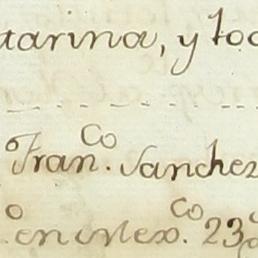 tarina, y to
Fran.co Sanchez
en Mex.co 23